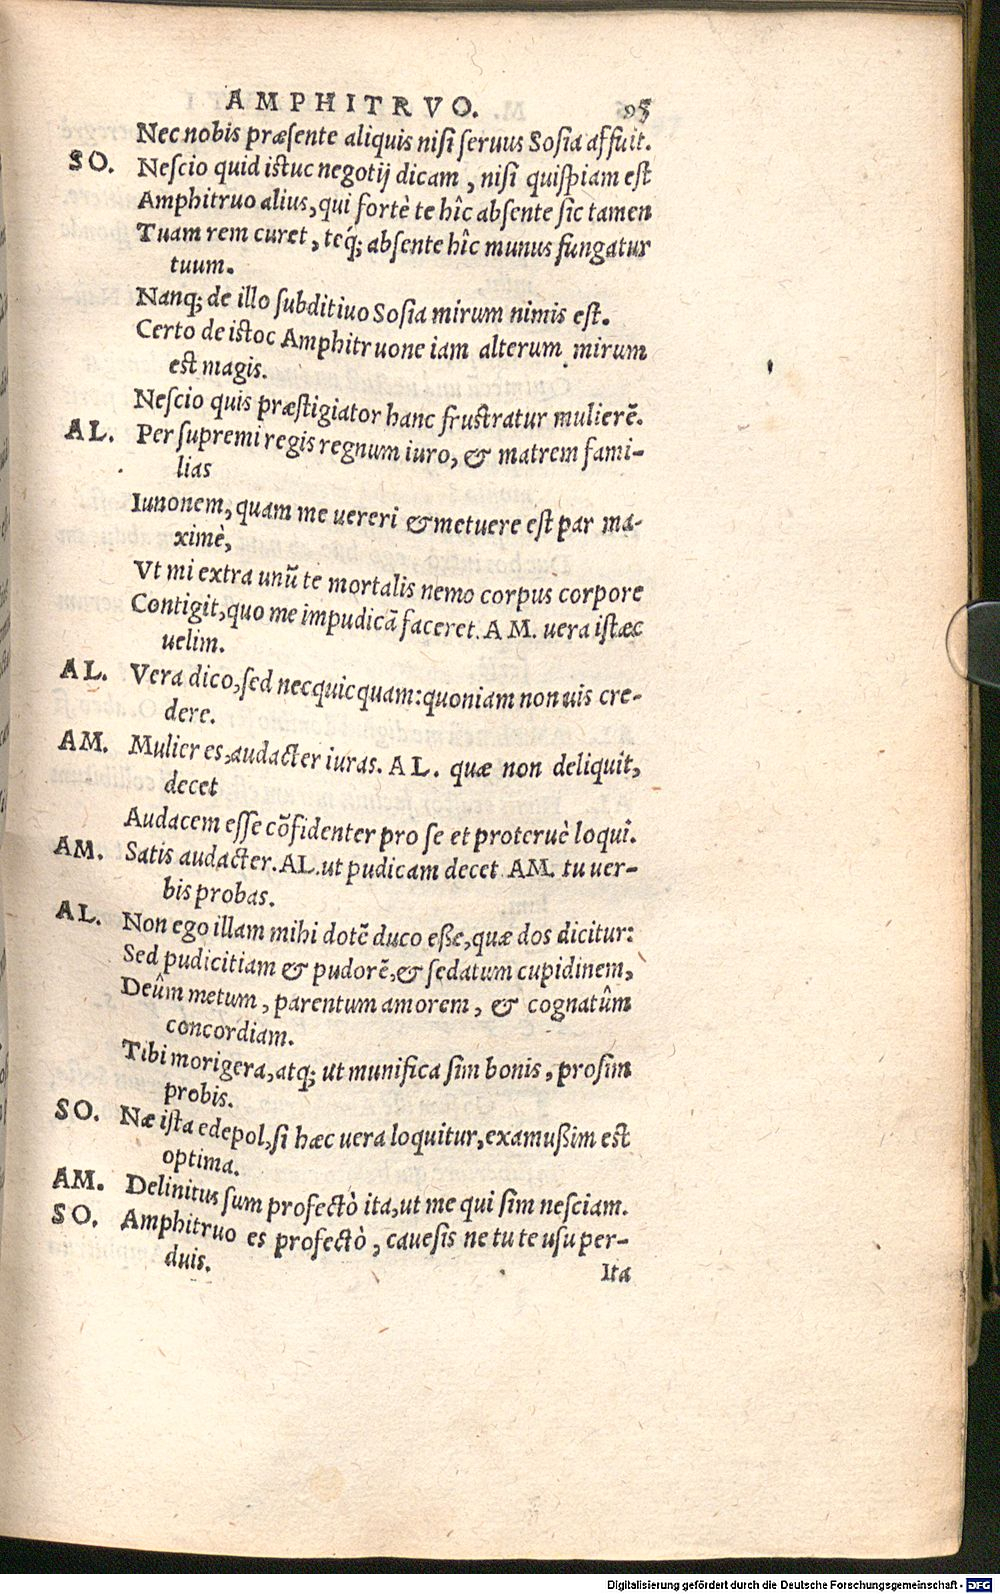 AMPHITRVO. 95
Nec nobis præsente aliquis nisi seruus Sosia affuit.
SO. Nescio quid istuc negotij dicam, nisi quispiam est
Amphitruo alius, qui fortè te hîc absente sic tamen
Tuam rem curet, teq́; absente hîc munus fungatur
tuum.
Nanq; de illo subditiuo Sosia mirum nimis est.
Certo de istoc Amphitruone iam alterum mirum
est magis.
Nescio quis præstigiator hanc frustratur mulierẽ.
AL. Per supremi regis regnum iuro, & matrem fami-
lias
Iunonem, quam me uereri & metuere est par ma-
ximè,
Vt mi extra unũ te mortalis nemo corpus corpore
Contigit, quo me impudicã faceret. AM. uera istæc
uelim.
AL. Vera dico, sed necquicquam: quoniam non uis cre-
dere.
AM. Mulier es, audacter iuras. AL. quæ non deliquit,
decet
Audacem esse cõfidenter pro se et proteruè loqui.
AM. Satis audacter. AL. ut pudicam decet AM. tu uer-
bis probas.
AL. Non ego illam mihi dotẽ duco eße, quæ dos dicitur:
Sed pudicitiam & pudorẽ, & sedatum cupidinem,
Deûm metum, parentum amorem, & cognatûm
concordiam.
Tibi morigera, atq; ut munifica sim bonis, prosim
probis.
SO. Næ ista edepol, si hæc uera loquitur, examußim est
optima.
AM. Delinitus sum profectò ita, ut me qui sim nesciam.
SO. Amphitruo es profectò, cauesis ne tu te usu per-
duis.
Ita
Digitalisierung gefördert durch die Deutsche Forschungsgemeinschaft - DFG